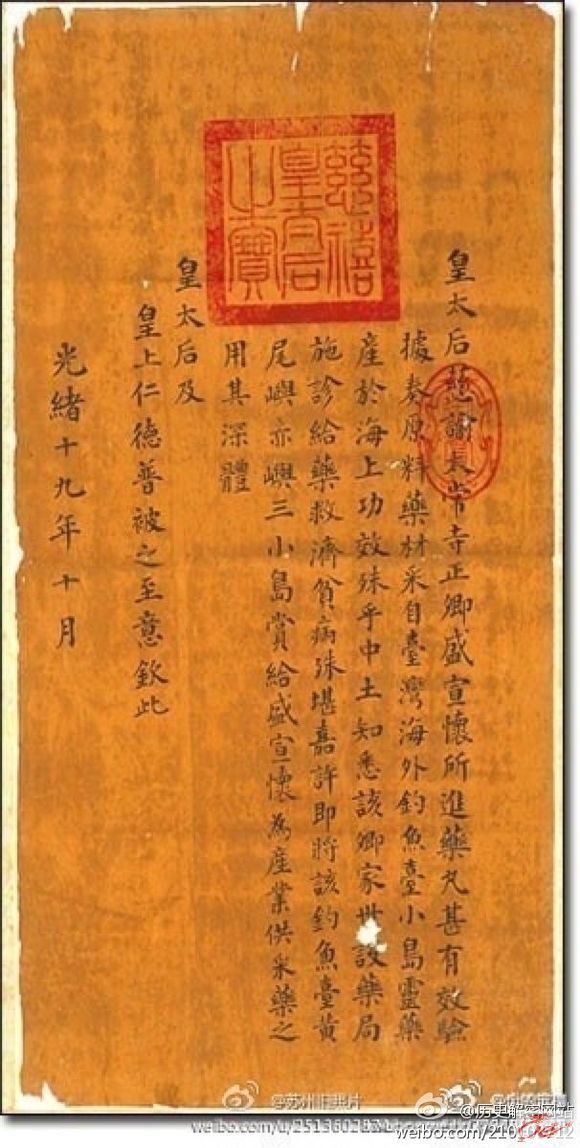 慈禧
皇太后
之寶
皇太后慈諭太常寺正卿盛宣懷所進藥丸甚有效驗
據奏原料藥材采自臺灣海外釣魚臺小島靈藥
產於海上功效殊乎中土知悉該卿家世設藥局
施診給藥救濟貧病殊堪嘉許即將該釣魚臺黃
尾嶼赤嶼三小島賞給盛宣懷為產業供采藥之
用其深體
皇太后及
皇上仁德普被之至意欽此
光緒十九年十月
@苏州旧照片
@历史解密网站